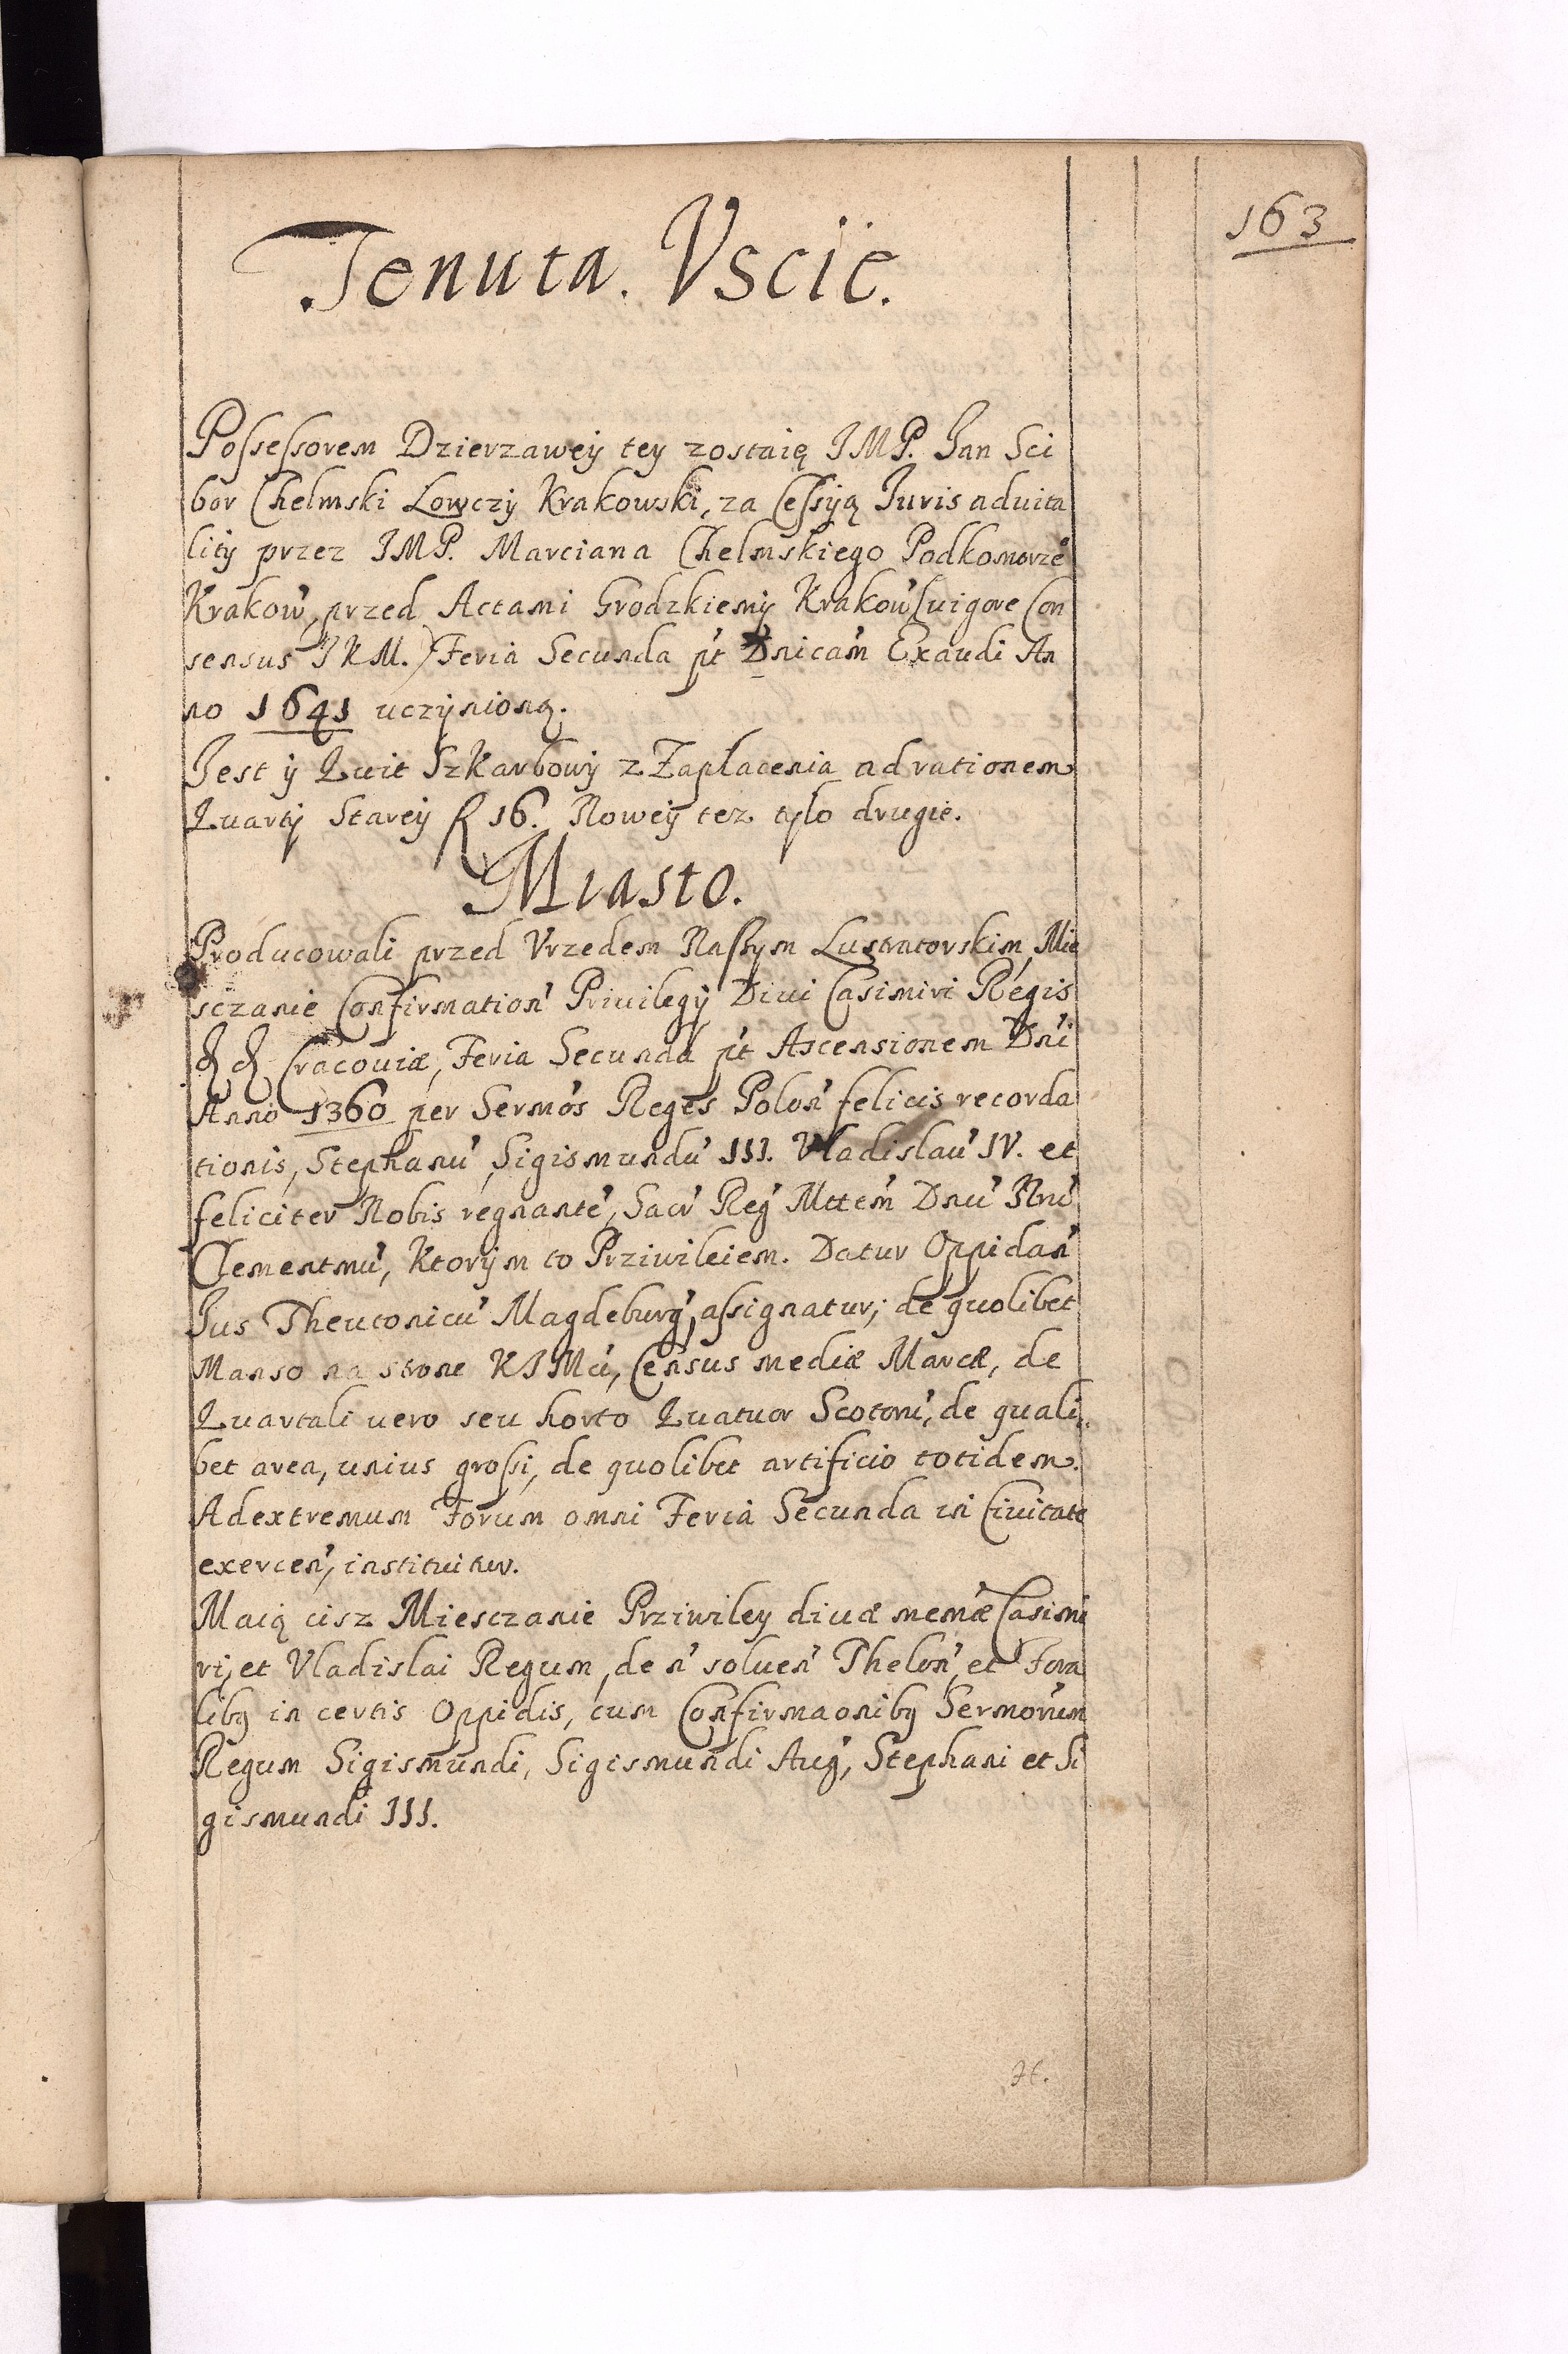 163
Tenuta. Vscie.
Possessorem Dzierzawey tey zostaię IMP. Jan Sci
bor Chelmski Lowczÿ Krakowski, za Cessÿą Iuris aduita
litÿ przez IMP. Marciana Chelmskiego Podkomorzė
Krakow̕, przed Actami Grodzkiemÿ Krakow̕ (uigore Con
sensus IKM.) Feria Secunda p̕t Dnicam̕ Exaudi An
no 1641 uczÿnioną.
Jest ÿ Quit Szkarbowÿ z Zaplacenia ad rationem
Quartÿ Stareÿ f 16. Noweÿ tez tylo drugie.
Miasto.
Producowali przed Vrzedem Naszym Lustratorskim, Mie
sczanie Confirmation̕ Priuilegÿ Diui Casimiri Regis
Cracouiæ, Feria Secunda p̕t Ascensionem Dn̕i
Anno 1360 per Sermos̕ Reges Polon̕ felicis recorda
tionis, Stephanu̕, Sigismundu̕ III. Vladislau̕ IV. et
feliciter Nobis regnante̕, Sacr̕ Reg̕ Mttem̕ Dnu̕ Nru̕
Clementmu̕, Ktorÿm to Prziwileiem. Datur Oppidan̕
Ius Theutonicu̕ Magdeburg̕, assignatur; de quolibet
Manso na strone KIMci, Census mediæ Marcæ, de
Quartali uero seu horto Quatuor Scotoru̕, de quali
bet area, unius grossi, de quolibet artificio totidem.
Ad extremum Forum omni Feria Secunda in Ciuitate
exercen̕, instituitur.
Maią cisz Miesczanie Prziwiley diuæ memæ̕ Casimi
ri, et Vladislai Regum, de n̕ soluen̕ Thelon̕ et Fora
libȝ in certis Oppidis, cum Confirmaonibȝ Sermorum̕
Regum Sigismundi, Sigismundi Aug̕, Stephani et Si
gismundi III.